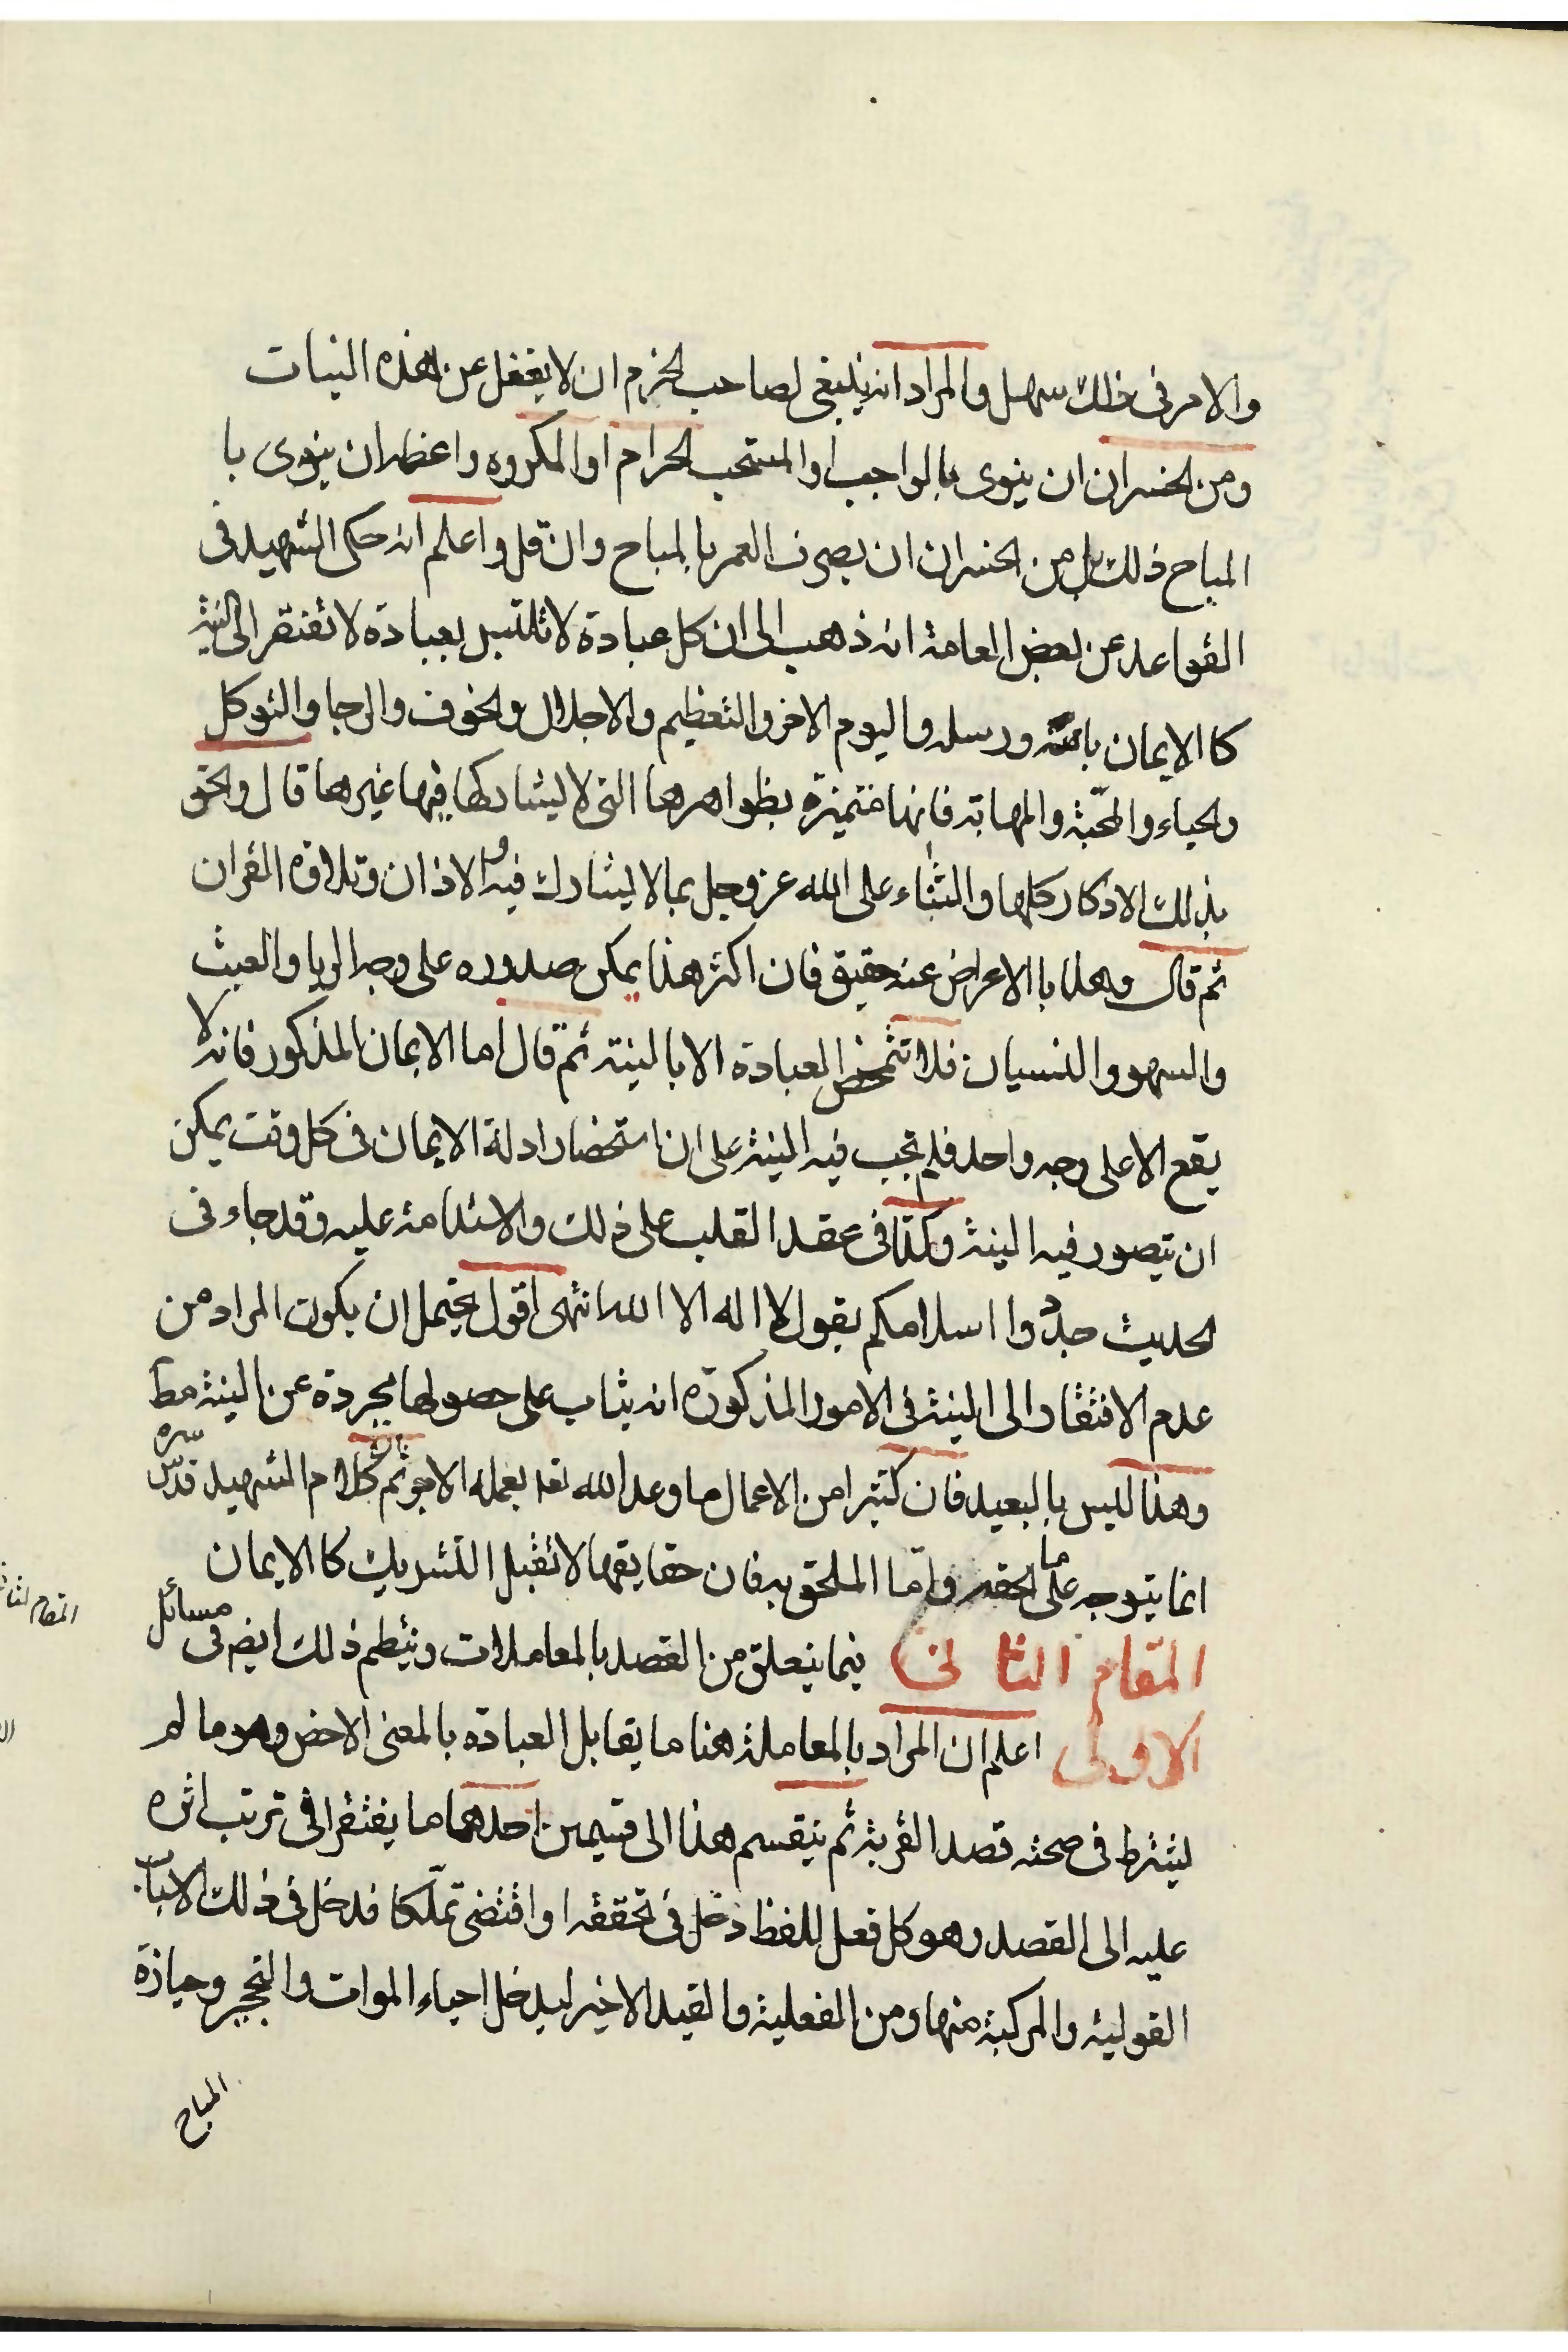 والامر فى ذلك سهل والمراد انه ينبغى لصاحب الحزم ان لا يغفل عن هذه النيات
ومن الخسران ان ينوى بالواجب او المستحب الحرام او المكروه واعظم ان ينوى با
المباح ذلك بل من الخسران ان يصرف العمر بالمباح وان قل واعلم انه حكى الشهيد فى
القواعد عن بعض العامة انه ذهب الى ان كل عبادة لا تلتبس بعبادة لا تفتقر الى النية
كا الايمان بالله ورسله واليوم الاخر والتعظيم والاجلال والخوف والرجا والتوكل
والحياء والمحبة والمهابة فانها متميزة بظواهرها التى لا يشاركها فيها غيرها قال والحق
بذلك الاذكار كلها والثناء على الله عز وجل بما لا يشارك فيه والاذان وتلاوة القران
ثم قال وهذا با الاعراض عنه حقيق فان اكثر هذا يمكن صدوره على وجه الريا والعبث
والسهو والنسيان فلا تتمحض العبادة الا بالنية ثم قال اما الايمان المذكور فانه لا
يقع الا على وجه واحد فلم تجب فيه النية على ان استحضار ادلة الايمان فى كل وقت يمكن
ان يتصور فيه النية وكذا فى عقد القلب على ذلك والاستدامة عليه وقد جاء فى
الحديث جددوا اسلامكم بقول لا اله الا الله انتهى اقول يحتمل ان يكون المراد من
عدم الافتقار الى النية فى الامور المذكورة انه يثاب على حصولها مجردة عن النية مط
وهذا ليس بالبعيد فان كثيرا من الاعمال ما وعد الله تعا بعمله الاجر ثم كلام الشهيد قدس سره
انما يتوجه على ما الحقه واما الملحق به فان حقايقها لا تقبل التشريك كا الايمان
المقام الثانى فيما يتعلق من القصد بالمعاملات وينظم ذلك ايض فى مسائل
الاولى اعلم ان المراد بالمعاملة هنا ما يقابل العبادة بالمعنى الاخص وهو ما لم
يشترط فى صحته قصد القربة ثم ينقسم هذا الى قسمين احدهما ما يفتقر فى ترتب اثره
عليه الى القصد وهو كل فعل للفظ دخل فى تحققه او اقتضى تملكا فدخل فى ذلك الاسباب
القولية والمركبة منها ومن الفعلية والقيد الاخير ليدخل احياء الموات والتحجير وحيازة
المباح